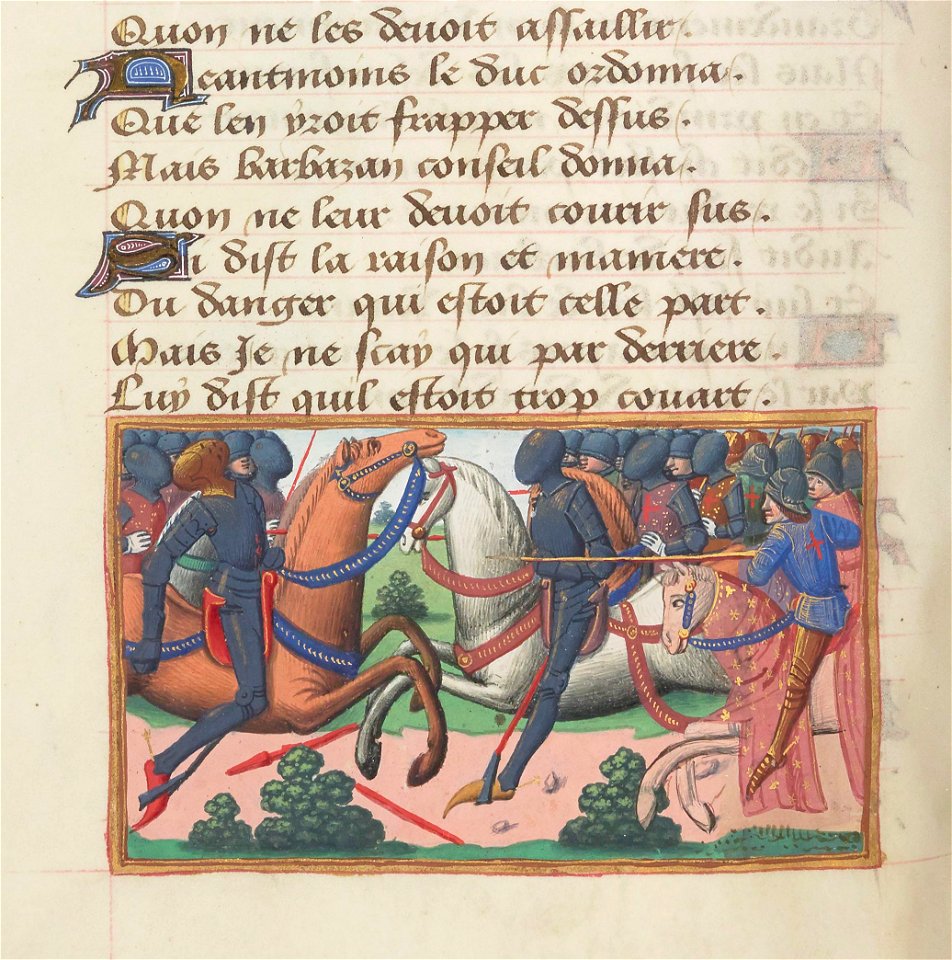 Quon ne les deuoit assaillir.
Neantmoins le duc ordonna.
Que len yroit frapper dessus.
Mais barbazan conseil donna.
Quon ne leur deuoit courir sus.
Si dist la raison et maniere.
Du danger qui estoit celle part.
Mais Je ne scay qui par derriere.
Luy dist quil estoit trop couart.